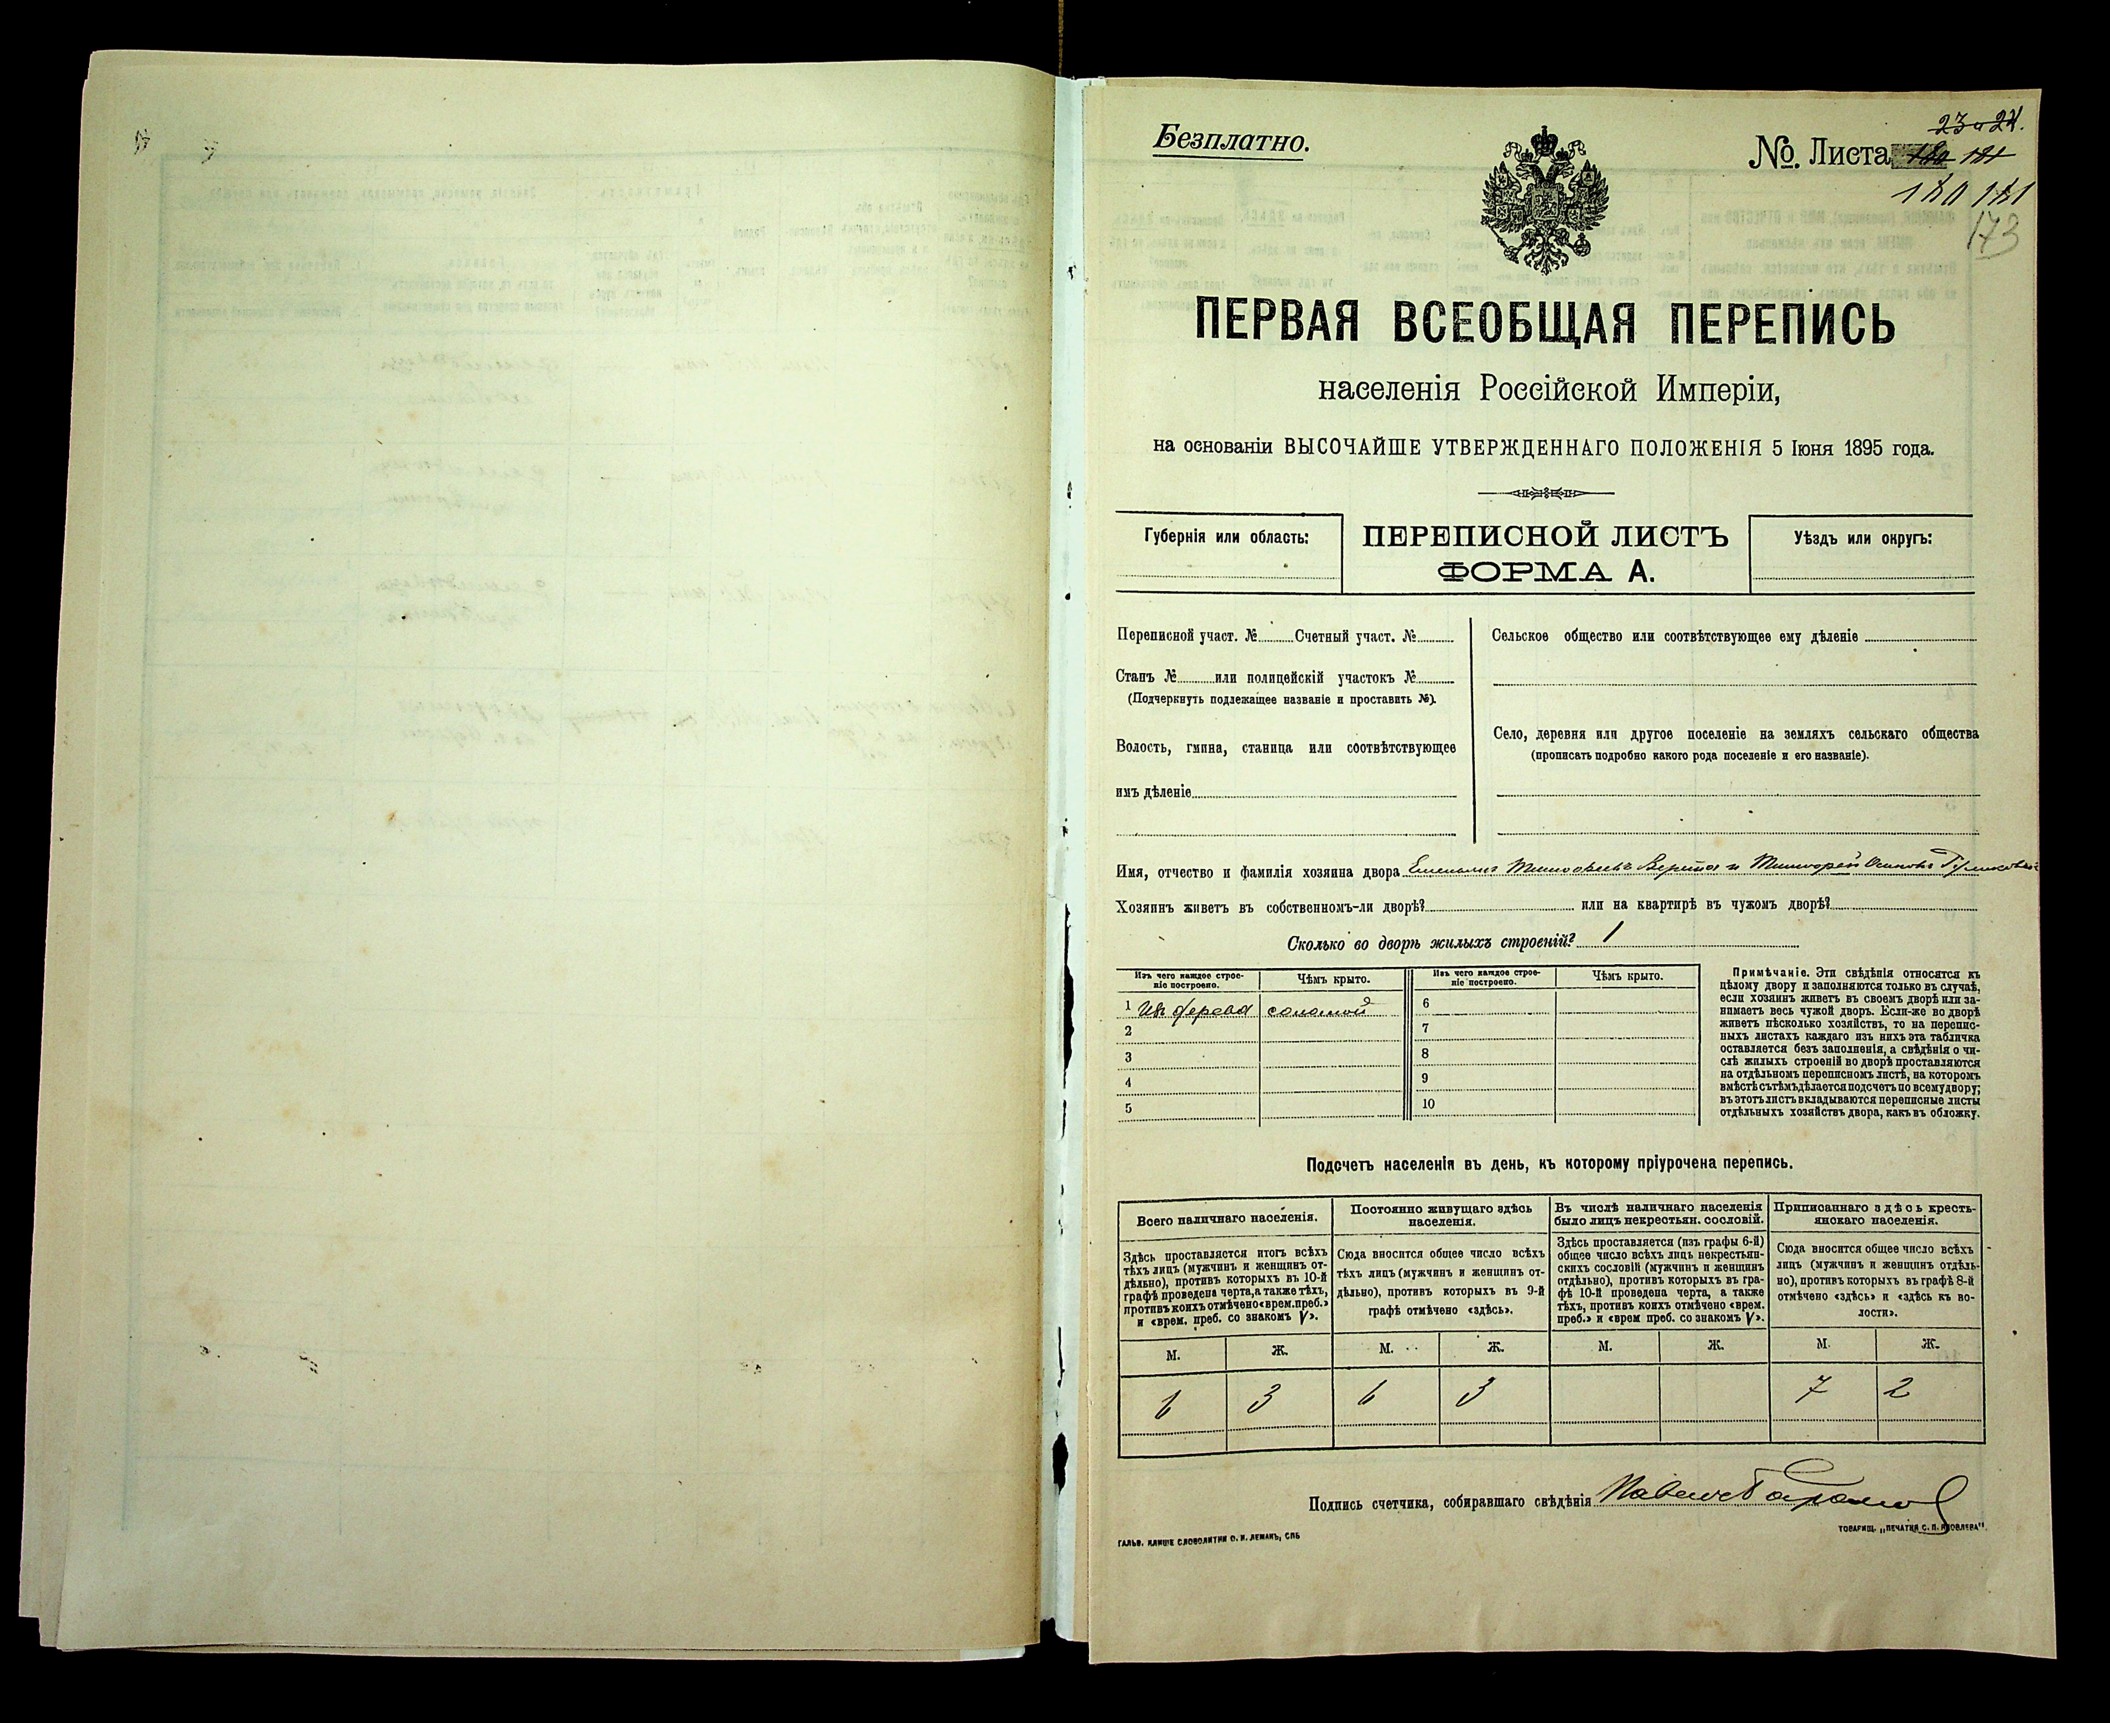 Безплатно.
23 и 24.
№. Листа 180 181
180 181
173
ПЕРВАЯ ВСЕОБЩАЯ ПЕРЕПИСЬ
населенія Россійской Имперіи,
на основаніи ВЫСОЧАЙШЕ УТВЕРЖДЕННАГО ПОЛОЖЕНІЯ 5 Іюня 1895 года.
Губернія или область:
ПЕРЕПИСНОЙ ЛИСТЪ
ФОРМА А.
Уѣздъ или округъ:
Переписной участ. № Счетный участ. №
Станъ № или полицейскій участокъ №
(Подчеркнуть подлежащее названіе и проставить №).
Волость, гмина, станица или соотвѣтствующее
имъ дѣленіе
Сельское общество или соотвѣтствующее ему дѣленіе
Село, деревня или другое поселеніе на земляхъ сельскаго общества
(прописать подробно какого рода поселеніе и его названіе).
Имя, отчество и фамилія хозяина двора Емельянъ Тимофеевъ и Тимофей Осиповъ
Хозяинъ живетъ въ собственномъ-ли дворѣ? или на квартирѣ въ чужомъ дворѣ?
Сколько во дворѣ жилыхъ строеній? 1
Изъ чего каждое строе-
ніе построено.
Чѣмъ крыто.
Изъ чего каждое строе-
ніе построено.
Чѣмъ крыто.
1 Изъ дерева соломой 6
2 7
3 8
4 9
5 10
Примѣчаніе. Эти свѣдѣнія относятся къ
цѣлому двору и заполняются только въ случаѣ,
если хозяинъ живетъ въ своемъ дворѣ или за-
нимаетъ весь чужой дворъ. Если-же во дворѣ
живетъ нѣсколько хозяйствъ, то на перепис-
ныхъ листахъ каждаго изъ нихъ эта табличка
оставляется безъ заполненія, а свѣдѣнія о чи-
слѣ жилыхъ строеній во дворѣ проставляются
на отдѣльномъ переписномъ листѣ, на которомъ
вмѣстѣ съ тѣмъ дѣлается подсчетъ по всему двору;
въ этотъ листъ вкладываются переписные листы
отдѣльныхъ хозяйствъ двора, какъ въ обложку.
Подсчетъ населенія въ день, къ которому пріурочена перепись.
Всего наличнаго населенія.
Здѣсь проставляется итогъ всѣхъ
тѣхъ лицъ (мужчинъ и женщинъ от-
дѣльно), противъ которыхъ въ 10-й
графѣ проведена черта, а также тѣхъ,
противъ коихъ отмѣчено «врем. преб.»
и «врем. преб. со знакомъ V».
Постоянно живущаго здѣсь
населенія.
Сюда вносится общее число всѣхъ
тѣхъ лицъ (мужчинъ и женщинъ от-
дѣльно), противъ которыхъ въ 9-й
графѣ отмѣчено «здѣсь».
Въ числѣ наличнаго населенія
было лицъ некрестьян. сословій.
Здѣсь проставляется (изъ графы 6-й)
общее число всѣхъ лицъ некрестьян-
скихъ сословій (мужчинъ и женщинъ
отдѣльно), противъ которыхъ въ гра-
фѣ 10-й проведена черта, а также
тѣхъ, противъ коихъ отмѣчено «врем.
преб.» и «врем преб. со знакомъ V».
Приписаннаго здѣсь кресть-
янскаго населенія.
Сюда вносится общее число всѣхъ
лицъ (мужчинъ и женщинъ отдѣль-
но), противъ которыхъ въ графѣ 8-й
отмѣчено «здѣсь» и «здѣсь къ во-
лости».
М. Ж. М. Ж. М. Ж. М. Ж.
6 3 6 3 7 2
Подпись счетчика, собиравшаго свѣдѣнія
ГАЛЬВ. КЛИШЕ СЛОВОЛИТНИ О. И. ЛЕМАНЪ, СПБ
ТОВАРИЩ. „ПЕЧАТНЯ С. П. ЯКОВЛЕВА“.